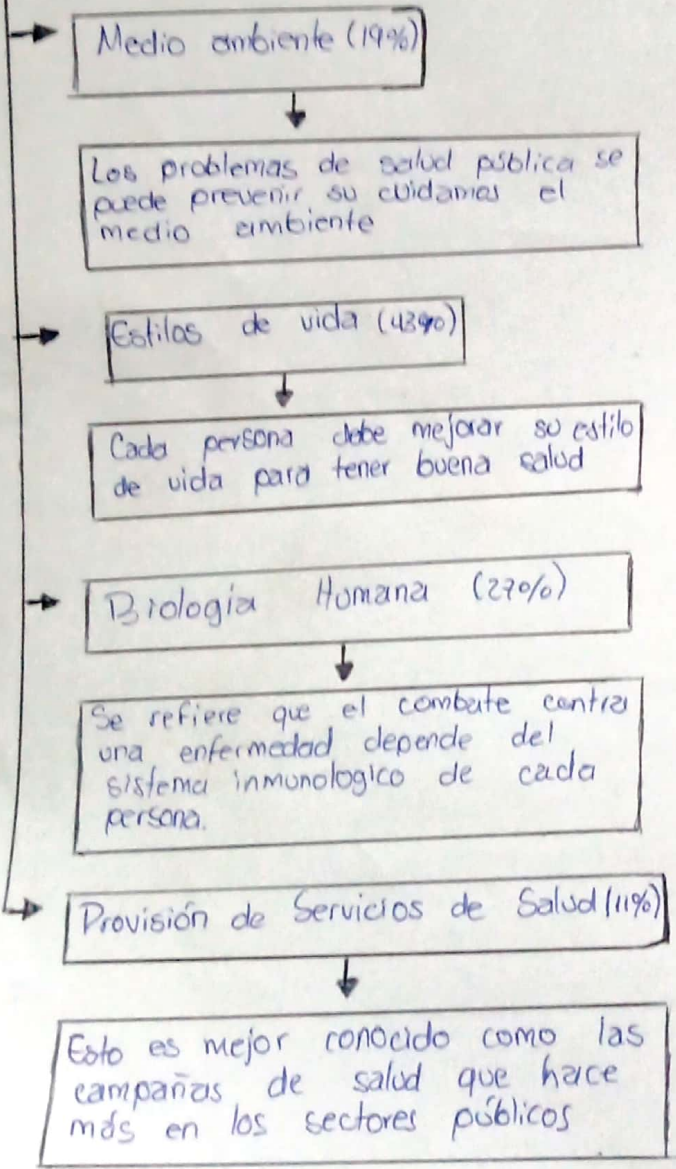 Medio ambiente (19%)
Los problemas de salud pública se
puede prevenir, su cuidamos el
medio ambiente
Estilos de vida (43%)
Cada persona debe mejorar su estilo
de vida para tener buena salud
Biología Humana (27%)
Se refiere que el combate contra
una enfermedad depende del
sistema inmunologico de cada
persona.
Provisión de Servicios de Salud (11%)
Esto es mejor conocido como las
campañas de salud que hace
más en los sectores públicos